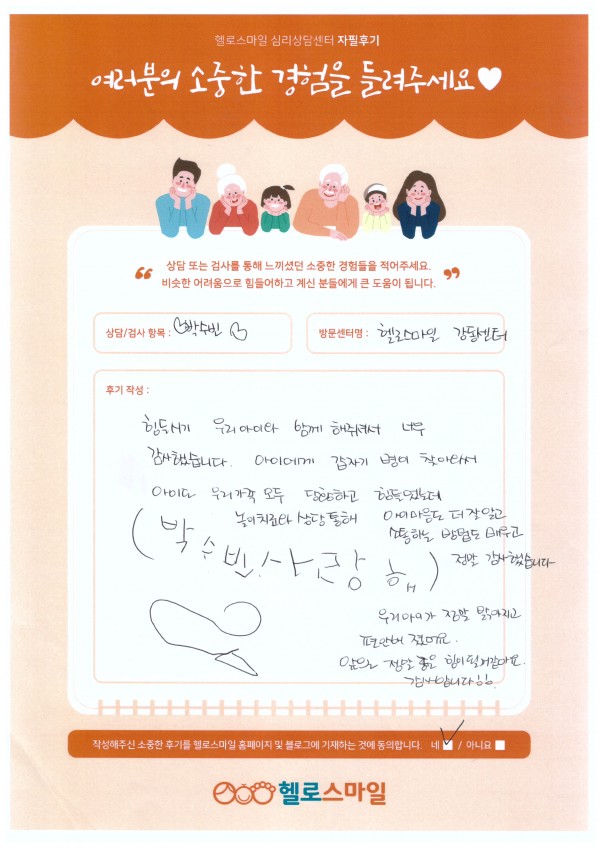 헬로스마일 심리상담센터 자필후기
여러분의 소중한 경험을 들려주세요♥
상담 또는 검사를 통해 느끼셨던 소중한 경험들을 적어주세요.
비슷한 어려움으로 힘들어하고 계신 분들에게 큰 도움이 됩니다.
상담/검사 항목 : ♡박수빈♡
방문센터명 : 헬로스마일 강동센터
후기 작성 :
힘든시기 우리아이와 함께 해주셔서 너무
감사했습니다. 아이에게 갑자기 병이 찾아와서
아이도 우리가족 모두 당황하고 힘들었는데
놀이치료와 상담 통해 아이마음도 더 잘 알고
소통하는 방법도 배우고
정말 감사했습니다
(박수빈 사랑해)
우리아이가 정말 밝아지고
편안해 졌어요.
앞으로 정말 좋은 힘이 될거같아요.
감사합니다!!
작성해주신 소중한 후기를 헬로스마일 홈페이지 및 블로그에 기재하는 것에 동의합니다. 네 ✓ / 아니요
헬로스마일